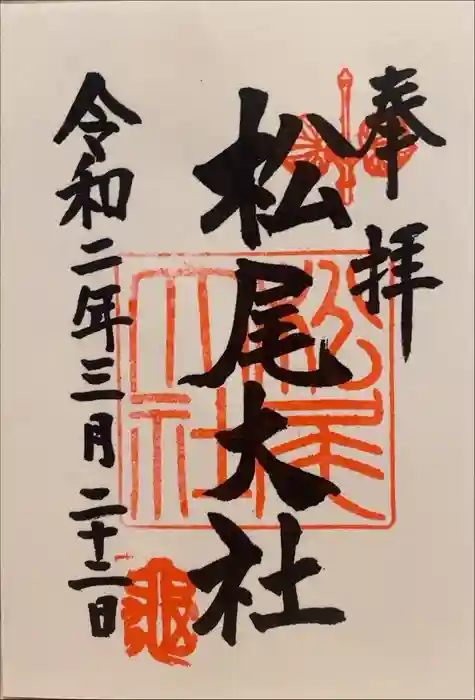 奉拝
松尾大社
令和二年三月二十二日
松尾大社